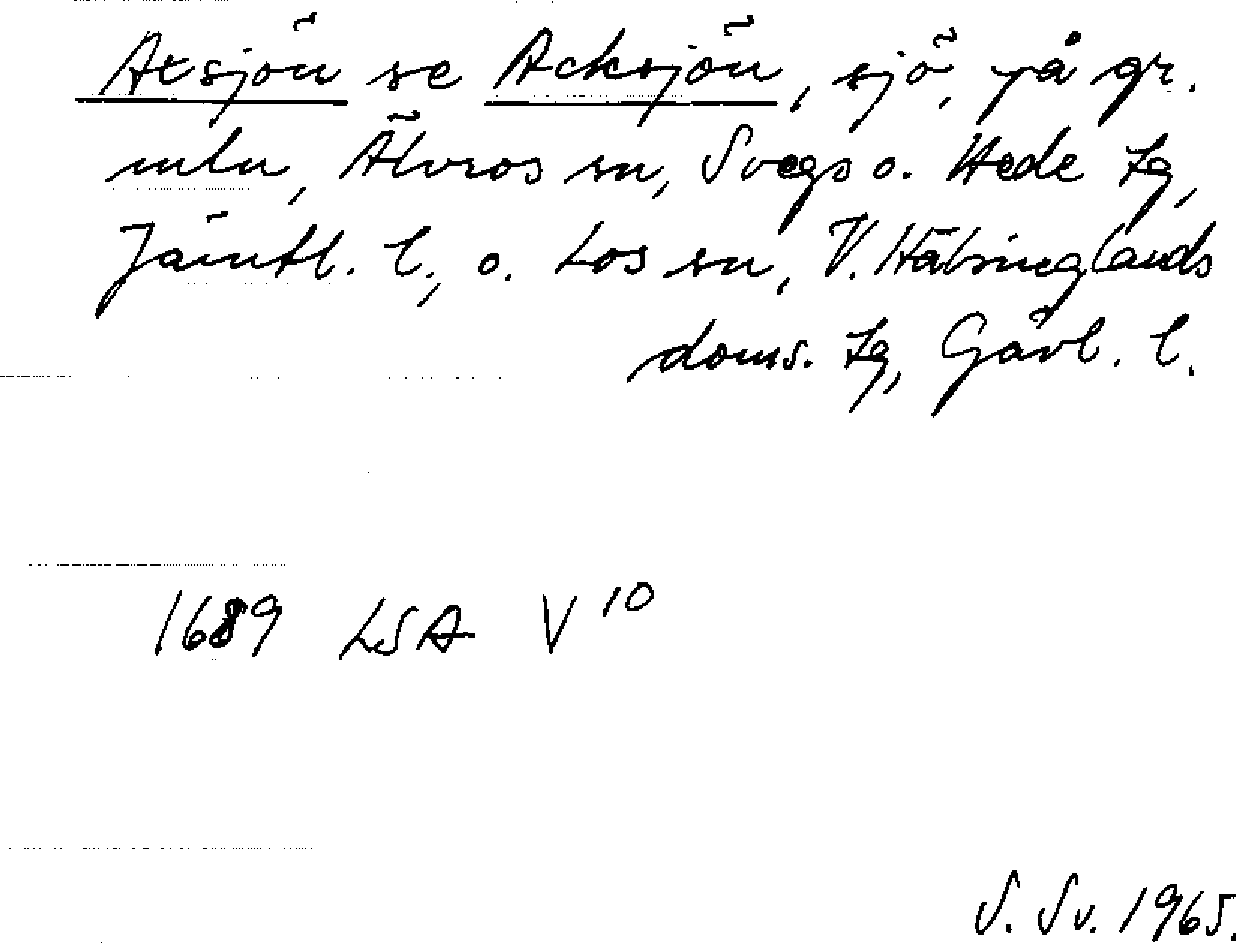 Atsjön se Acksjön, sjö, på gr.
mln, Älvros sn, Svegs o. Hede tg,
Jämtl. l., o. Los sn, V. Hälsinglands
doms. tg, Gävl. l.
1689 LSA V¹⁰
S. Sv. 1965.